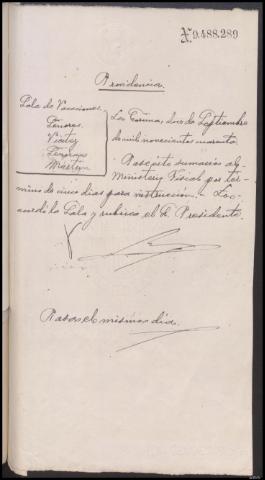 9.488.289
Providencia.
Sala de Vacaciones.
Señores.
Mártin
La Coruña, dos de Septiembre
de mil novecientos cuarenta
Pase este sumario al
Ministerio Fiscal por tér-
mino de cinco días para instrucción.- Lo
acordó la Sala y rubrica el Sr. Presidente.
Pasa el mismo día.